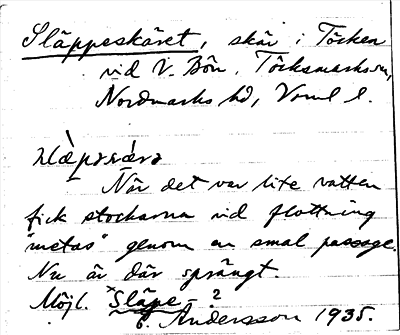 Släppeskäret, skär i Töcken
vid V. Bön, Töcksmarks sn,
Nordmarks hd, Vrml l.
När det var lite vatten
fick stockarna vid flottning
"metas" genom en smal passage.
Nu är där sprängt.
Möjl. *Släpe ?
E. Andersson 1935.